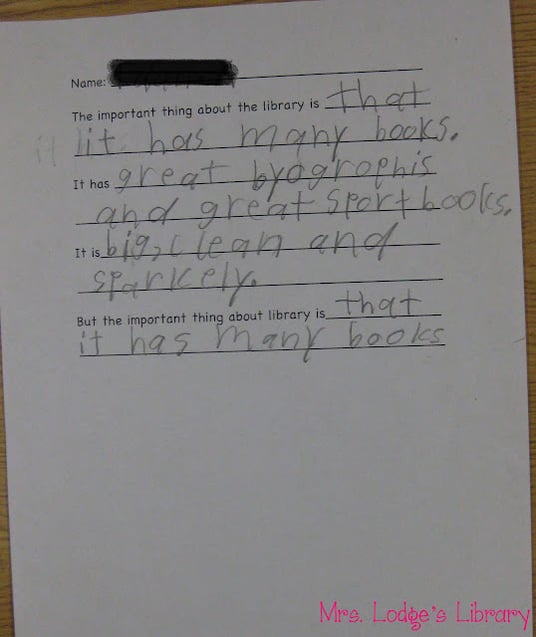 Name:
The important thing about the library is that
it has many books.
It has great byographis
and great sport books.
It is big, clean and
sparkely.
But the important thing about library is that
it has many books
Mrs. Lodge's Library